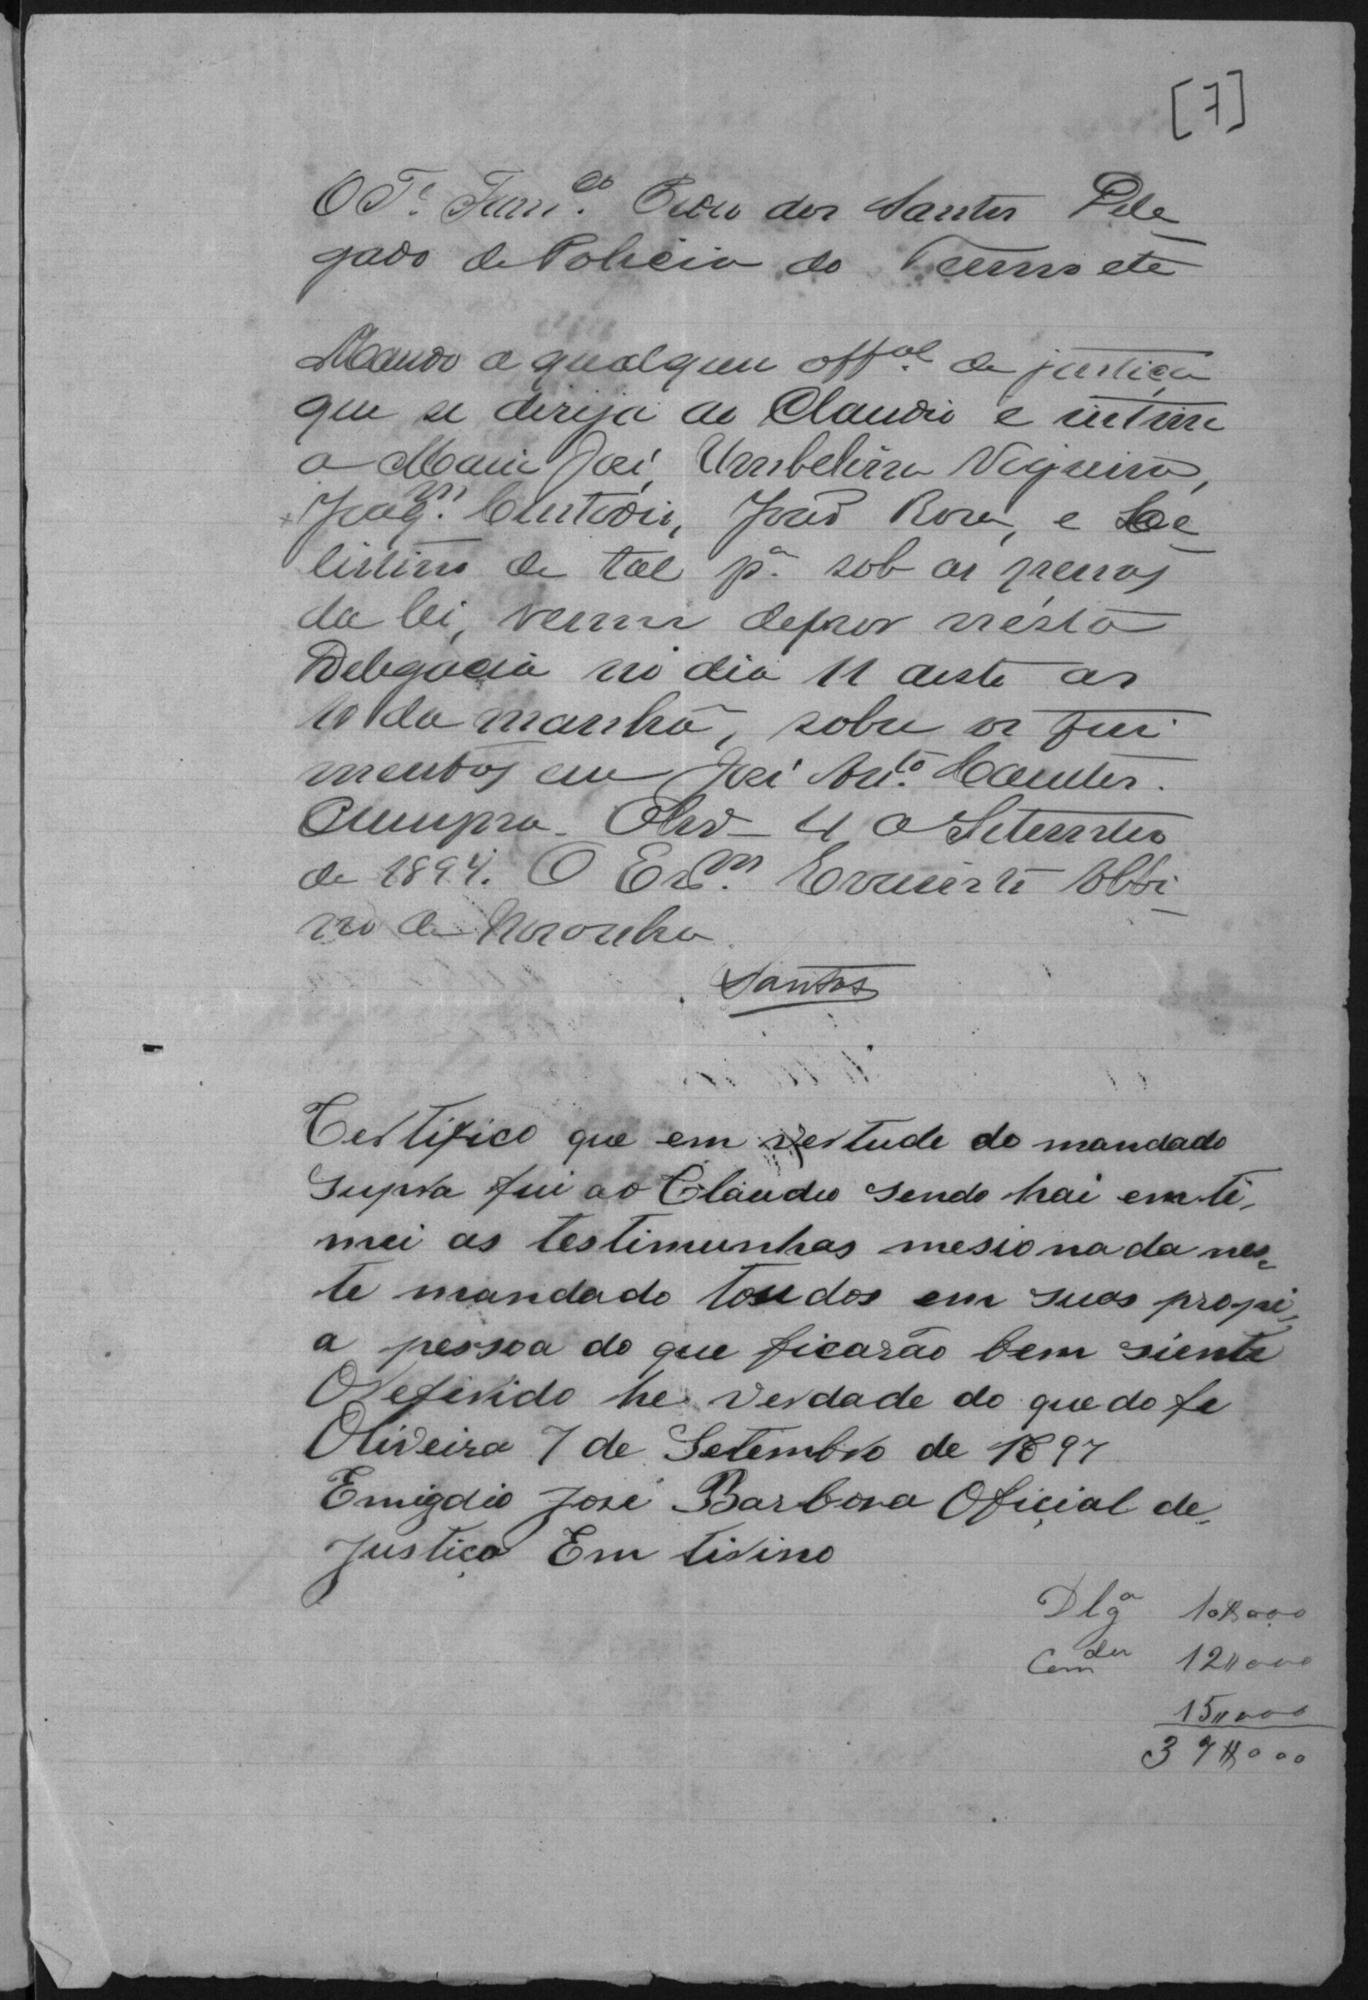 [7]
O T.e Fran.co dos Santos Dele
gado de Policia do Termo etc
Mando a qualquer off.al de justiça
que se dirija ao Claudio e intime
a Maria José, Umbelina Nogueira,
Joaq.m Custodio, João Rosa, e Ce
lestino de tal p.a sob as penas
da lei, virem depor nésta
Delegacia no dia 11 deste as
10 da manhã, sobre os feri
mentos em José Ant.o
Cumpra. Olivr.a 4 Setembro
de 1897. O Escr.m Evaristo Albi
no de Noronha
Santos
Certifico que em vertude do mandado
supra fui ao Claudio sendo hai emti-
mei as testimunhas mesionada nes-
te mandado toudos em suas propi-
a pessoa do que ficarão bem siente
O referido he verdade do que do fe
Oliveira 7 de Setembro de 1897
Emigdio José Barbosa Oficial de
Justiça Em tirino
Dlg.a 10$000
12$000
15$000
37$000